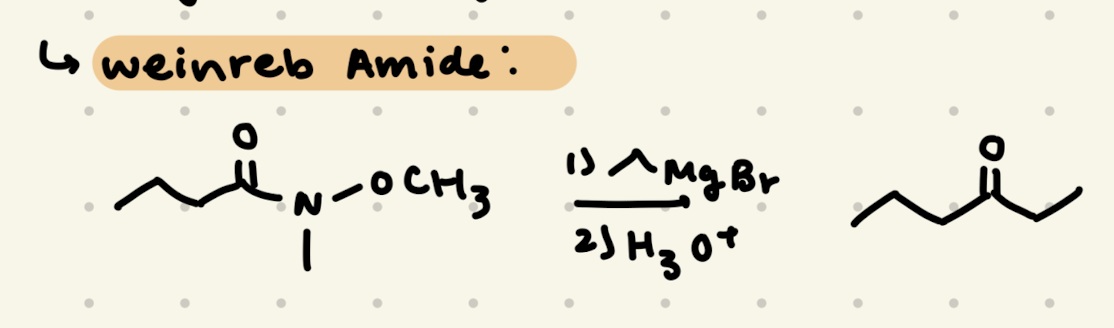 ↳ weinreb Amide:
O
N-OCH3
1) MgBr
2) H3O+
O